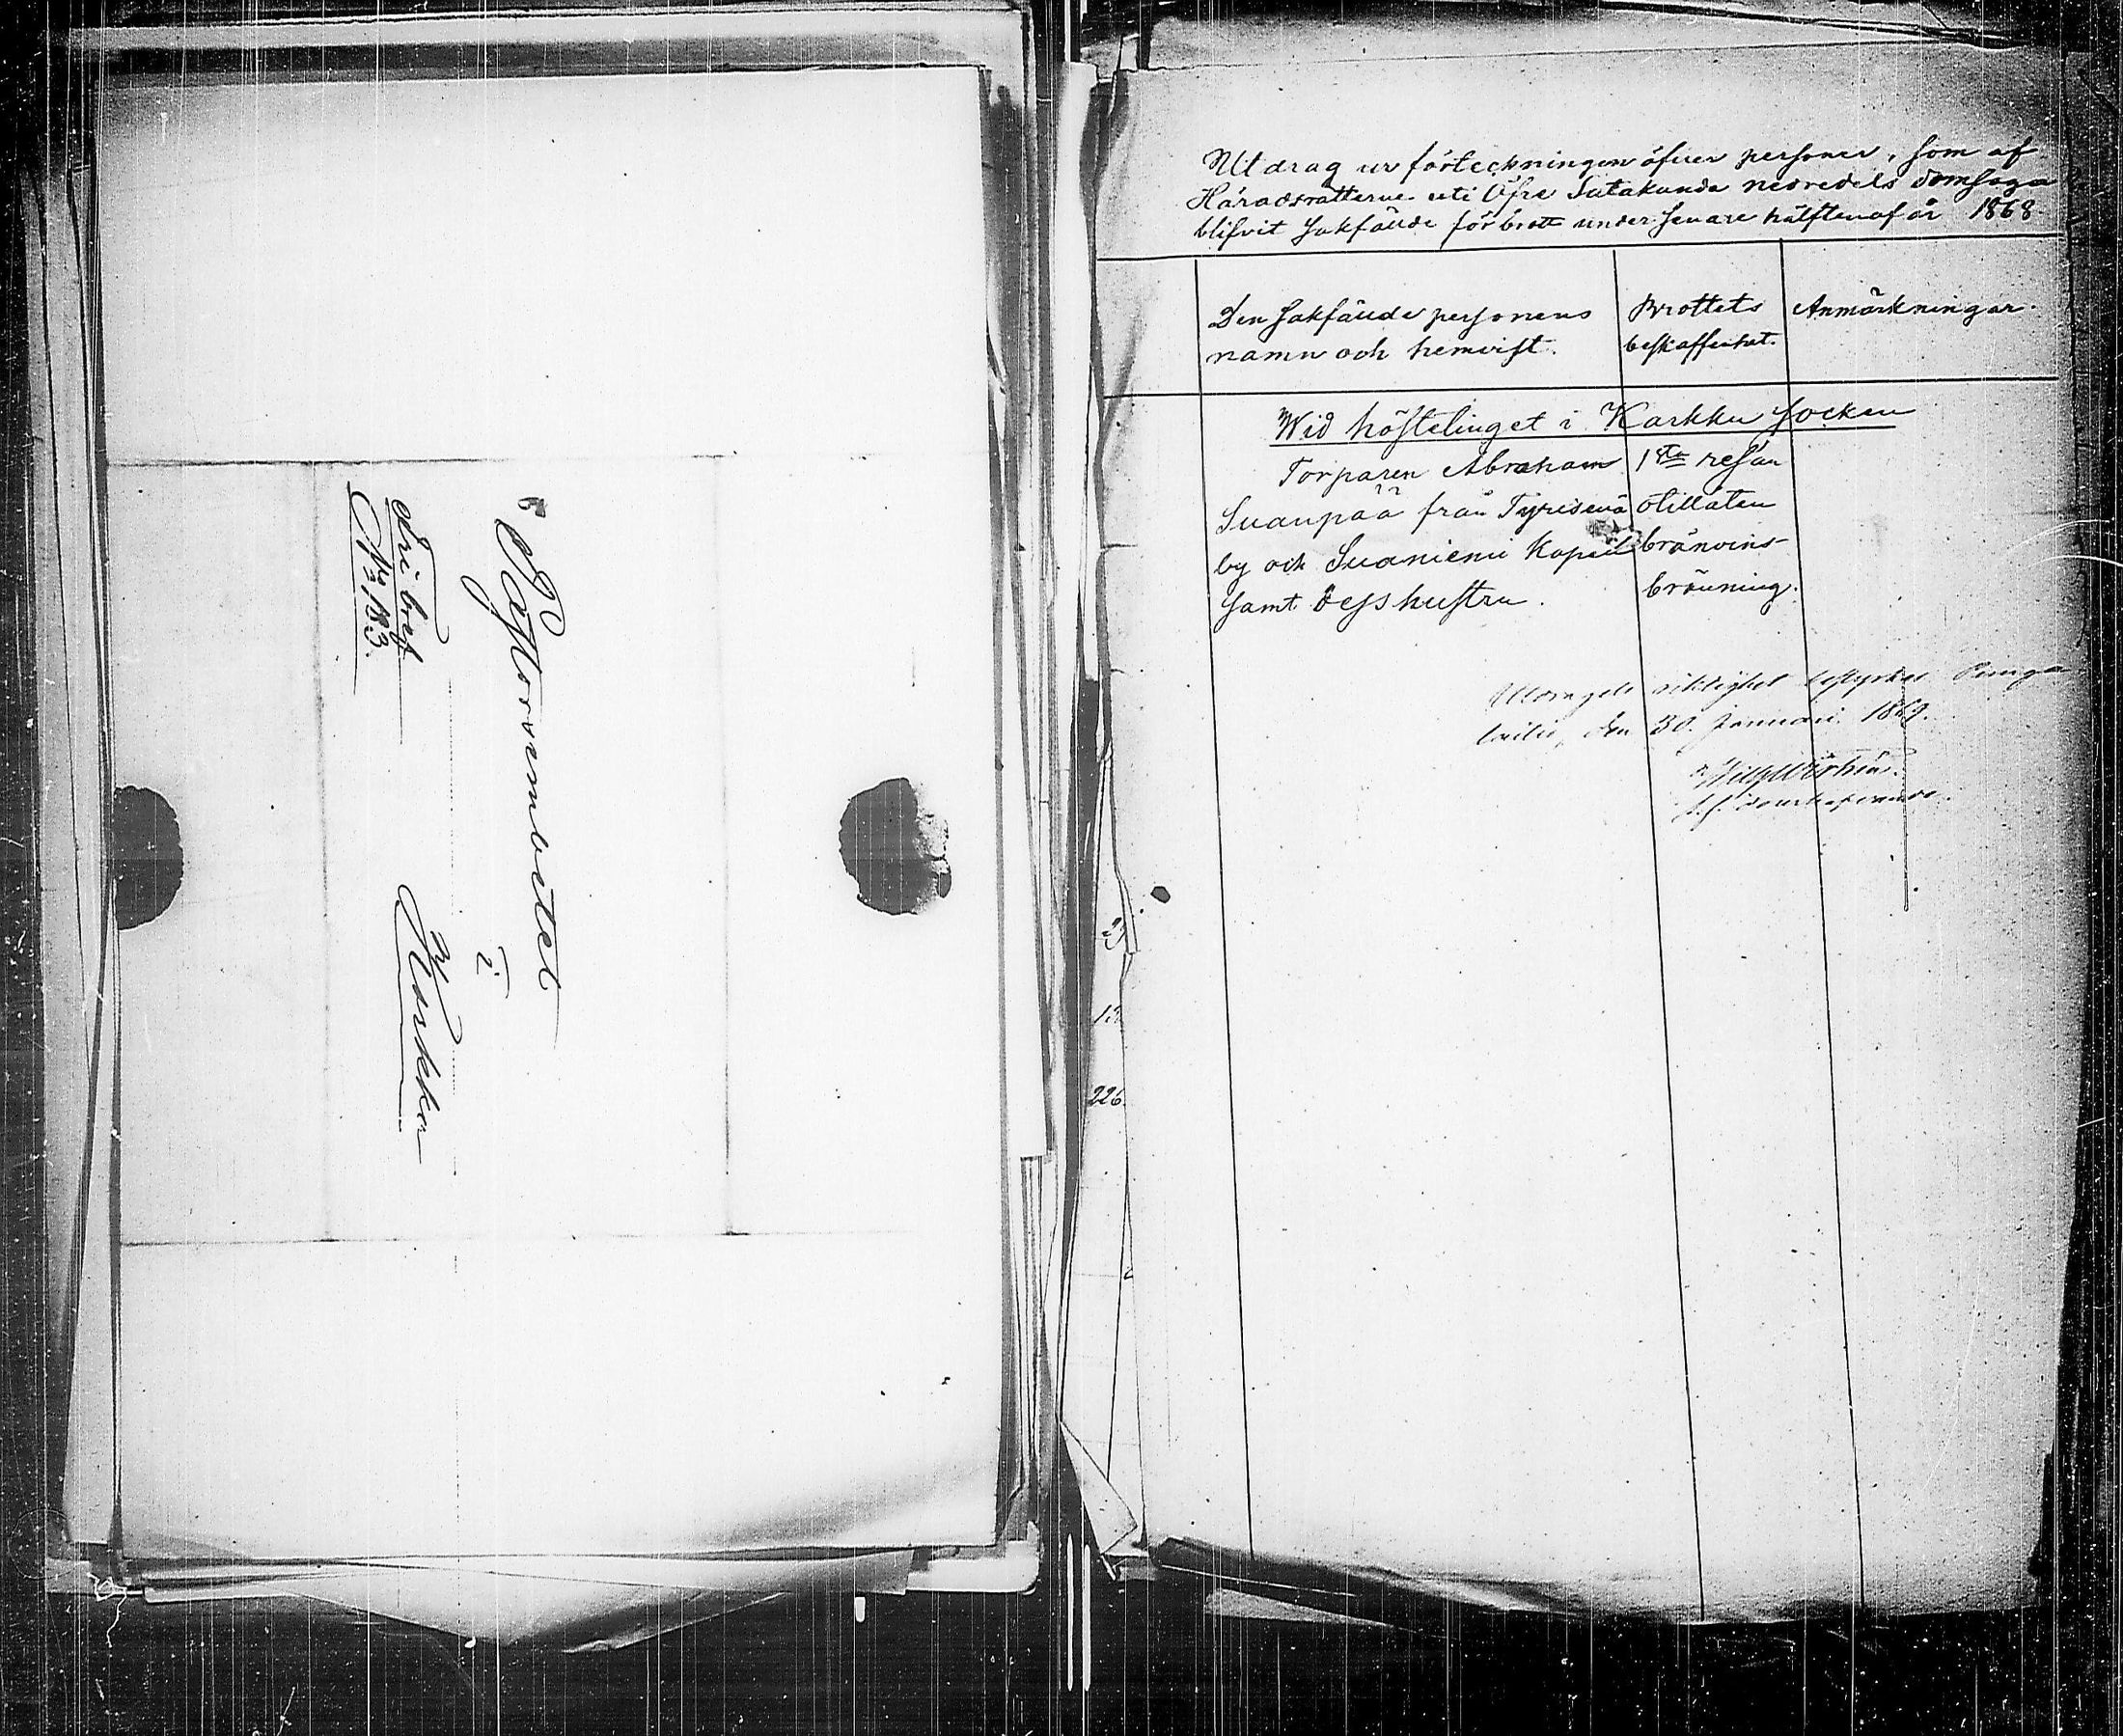 Pastorsembetet
i
Karkku
Fribref
No 183.
Utdrag ur förteckningen öfver personer, som af
Häradsrätterne uti Öfre Satakunda nedredels domsaga
blifvit sakfälde för brott under senare hälften af år 1868.
Den sakfälde personens
namn och hemvist.
Brottets
beskaffenhet.
Anmärkningar.
Wid hösttinget i Karkku socken
Torparen Abraham 1sta resan
Suanpää från Tyrisevä otillåten
by och Suaniemi kapell bränvins-
samt dess hustru. bränning.
Utdragets riktighet bestyrkes
den 30. Januari 1869.
23
13
226.